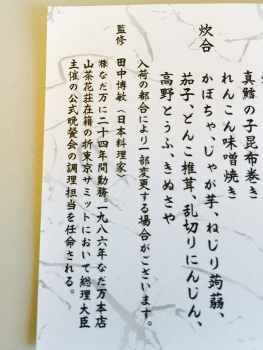 真鱈の子昆布巻き
れんこん味噌焼き
炊合
かぼちゃ、じゃが芋、ねじり蒟蒻、
茄子、どんこ椎茸、乱切りにんじん、
高野とうふ、きぬさや
入荷の都合により一部変更する場合がございます。
監修　田中博敏〈日本料理家〉
㈱なだ万に二十四年間勤務。一九八六年なだ万本店
山茶花荘在籍の折東京サミットにおいて総理大臣
主催の公式晩餐会の調理担当を任命される。